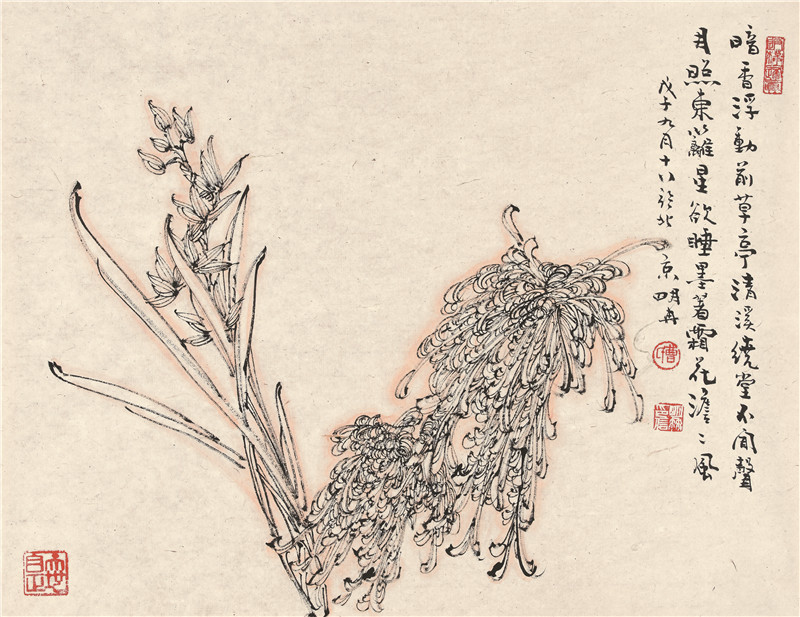 暗香浮動前草亭清溪繞堂不聞聲
月照東籬星欲睡墨著霜花澹〻風
戊子九月十八於北京明冉